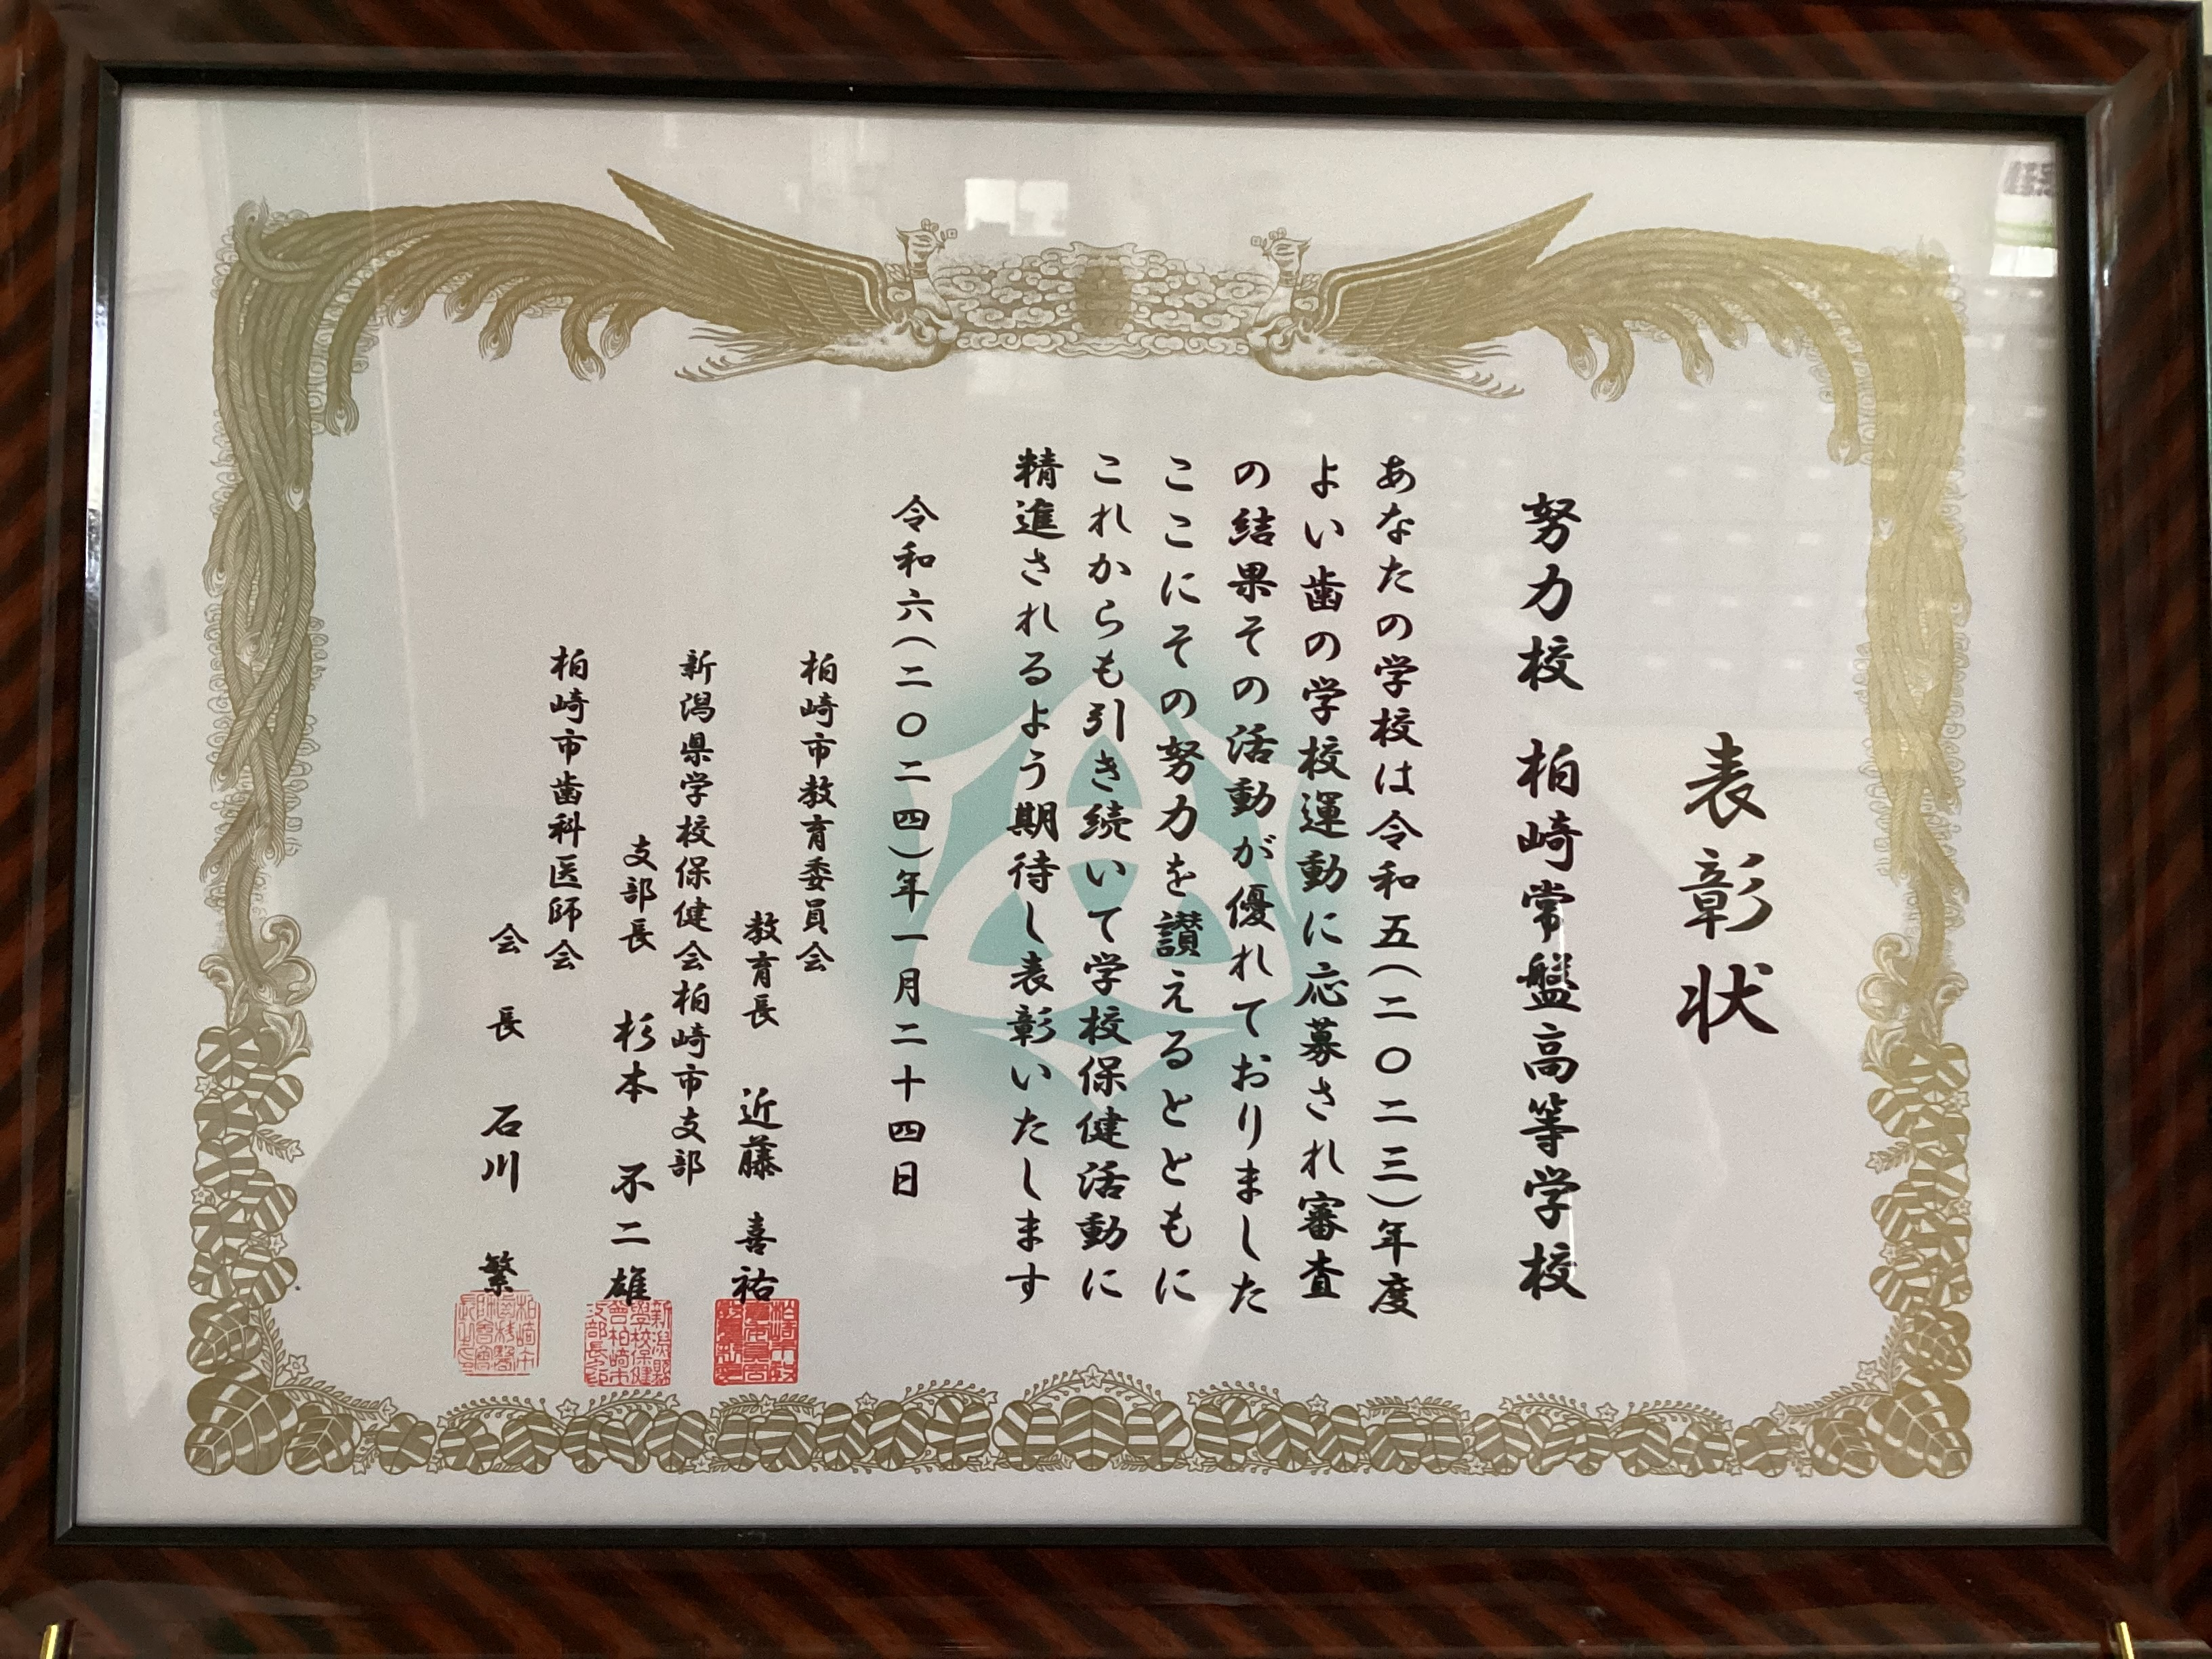 表彰状
努力校 柏崎常盤高等学校
あなたの学校は令和五(二〇二三)年度
よい歯の学校運動に応募され審査
の結果その活動が優れておりました
ここにその努力を讃えるとともに
これからも引き続いて学校保健活動に
精進されるよう期待し表彰いたします
令和六(二〇二四)年一月二十四日
柏崎市教育委員会
教育長 近藤 喜祐
新潟県学校保健会柏崎市支部
支部長 杉本 不二雄
柏崎市歯科医師会
会長 石川 繁